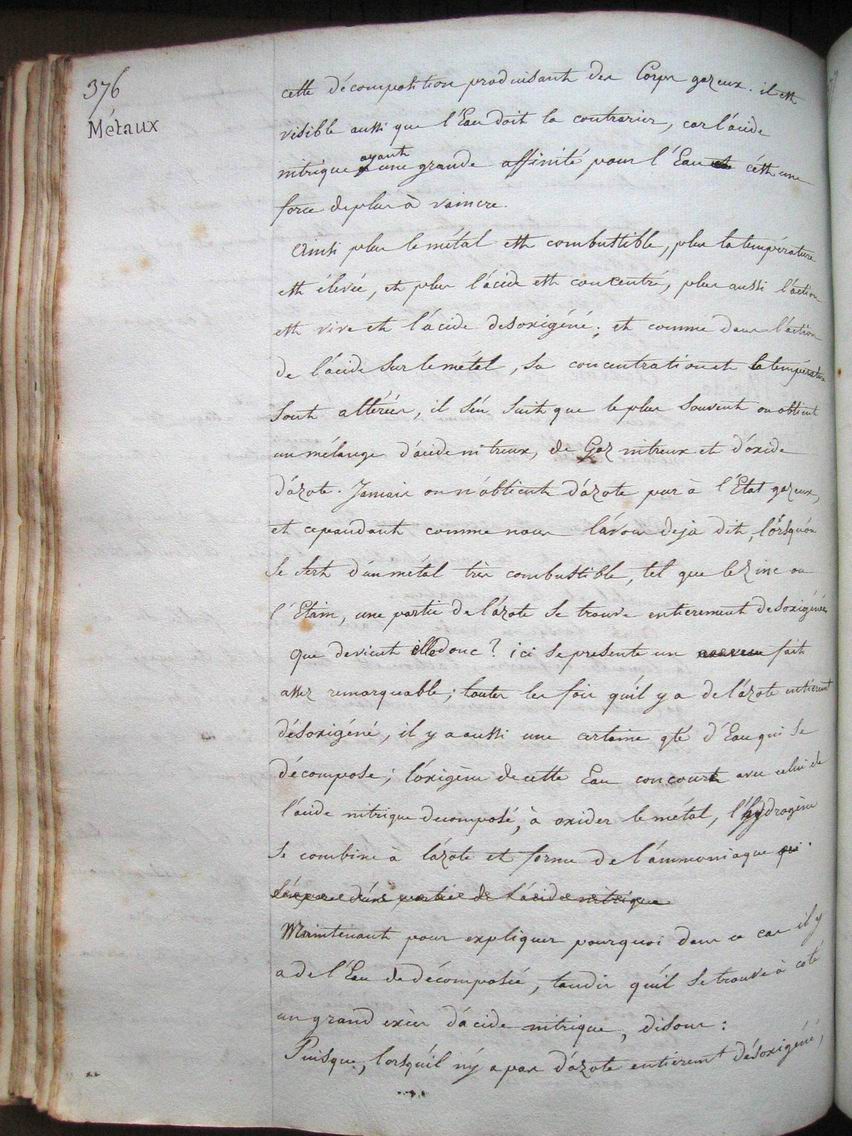 376
Métaux
cette décomposition produisant des Corps gazeux. il est
visible aussi que l'Eau doit la contrarier, car l'acide
nitrique ayant une grande affinité pour l'Eau c'est une
force de plus à vaincre.
Ainsi plus le métal est combustible, plus la température
est élevée, et plus l'acide est concentré, plus aussi l'action
est vive et l'acide desoxigéné; et comme dans l'action
de l'acide sur le métal, sa concentration et la température
sont altérées, il s'en suit que le plus souvent on obtient
un mélange d'acide nitreux, de Gaz nitreux et d'oxide
d'azote. Jamais on n'obtient d'azote pur à l'Etat gazeux,
et cependant comme nous l'avons deja dit, lorsqu'on
se sert d'un métal très combustible, tel que le Zinc ou
l'Etain, une partie de l'azote se trouve entierement desoxigénée
que devient elle donc? ici se presente un nouveau fait
assez remarquable; toutes les fois qu'il y a de l'azote entièrement
désoxigéné, il y a aussi une certaine qté d'Eau qui se
décompose; l'oxigène de cette Eau concourt avec celui de
l'acide nitrique decomposé, à oxider le métal, l'hydrogène
se combine à l'azote et forme de l'ammoniaque qui
s'empare d'une partie de l'acide nitrique
Maintenant pour expliquer pourquoi dans ce cas il y
a de l'Eau de décomposée, tandis qu'il se trouve à coté
un grand excès d'acide nitrique, disons:
Puisque, lorsqu'il n'y a pas d'azote entierement désoxigéné,